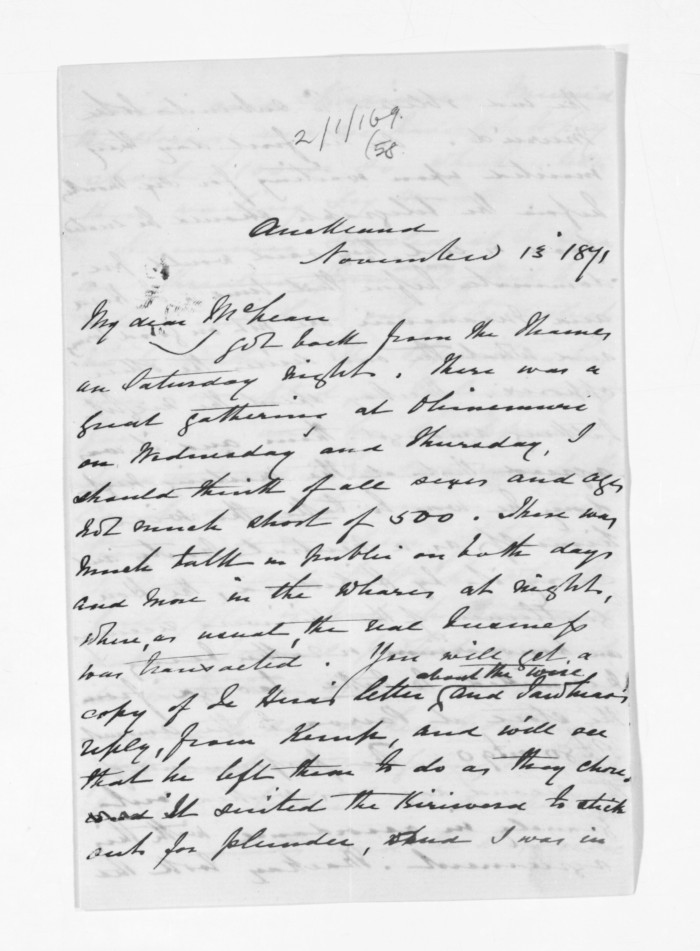 2/1/169.
(58
Auckland
November 13 1871
My dear McLean
I got back from the Thames
on Saturday night. There was a
great gathering at Ohinemuri
on Wednesday and Thursday, I
should think of all sexes and ages
not much short of 500. There was
much talk in public on both days
and more in the whares at night,
where, as usual, the real business
was transacted. You will get a
copy of Te Hira's letter about the wire and Tawhiao's
reply, from Kemp, and will see
that he left them to do as they chose.
It suited the Kiriwera to stick
out for plunder, and I was in